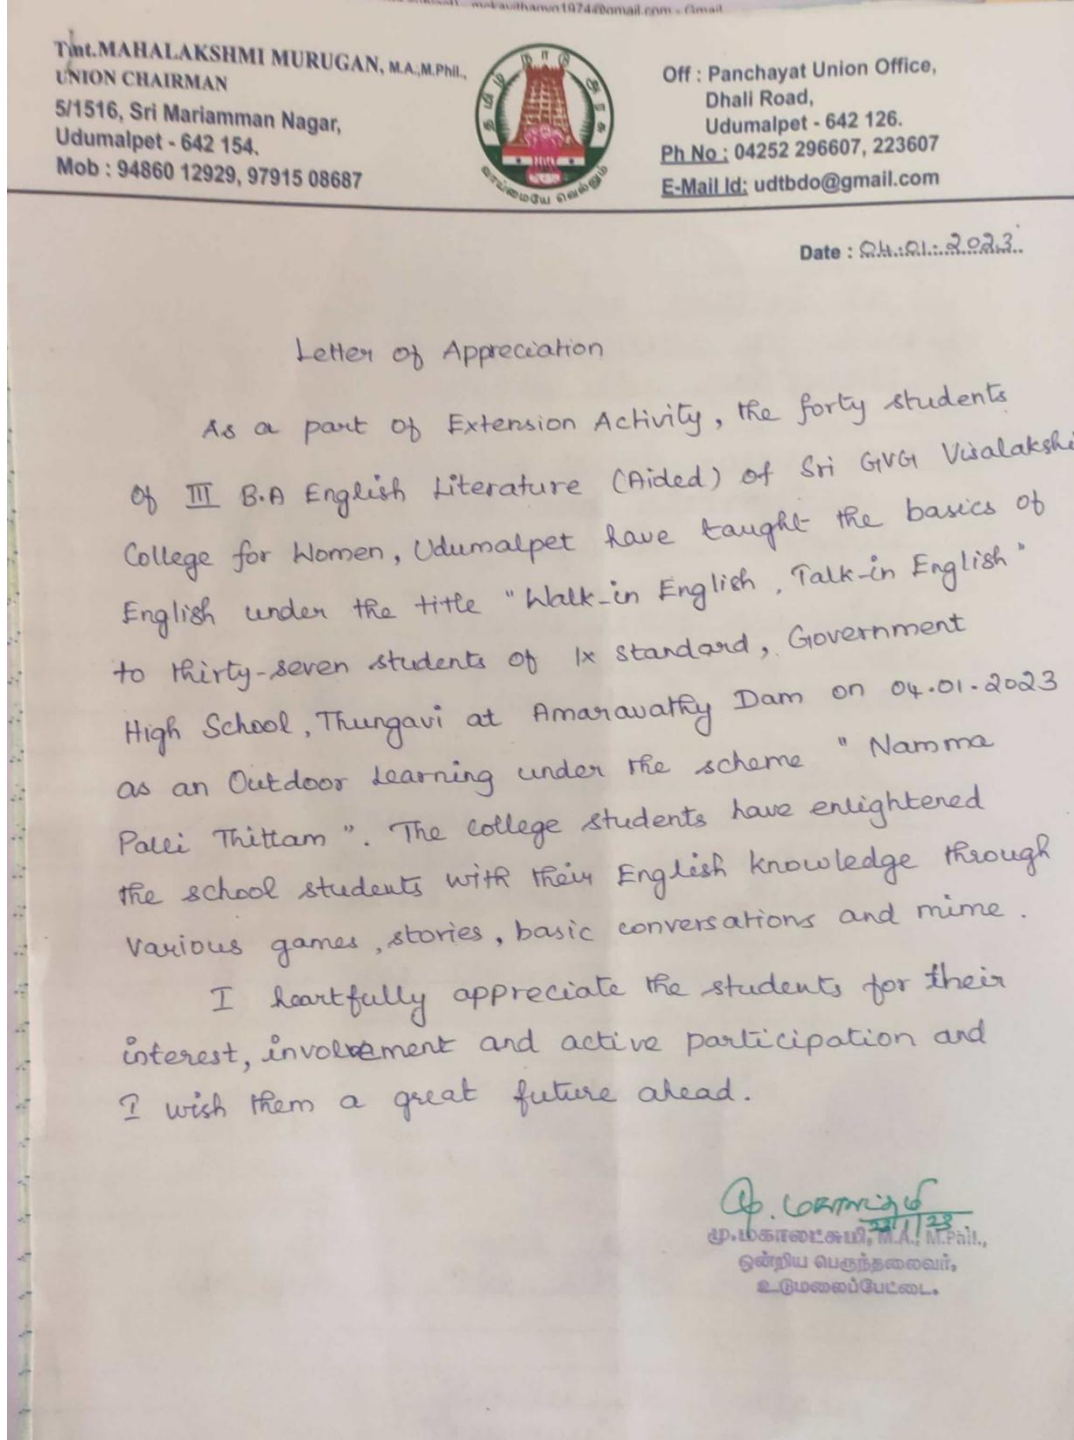 mekavithanyn1974@gmail.com - Gmail
Tmt.MAHALAKSHMI MURUGAN, M.A.,M.Phil.,
UNION CHAIRMAN
5/1516, Sri Mariamman Nagar,
Udumalpet - 642 154.
Mob : 94860 12929, 97915 08687
தமிழ்நாடு அரசு
வாய்மையே வெல்லும்
Off : Panchayat Union Office,
Dhali Road,
Udumalpet - 642 126.
Ph No : 04252 296607, 223607
E-Mail Id: udtbdo@gmail.com
Date : 04.01.2023
Letter of Appreciation
As a part of Extension Activity, the forty students
of III B.A English Literature (Aided) of Sri GVG Visalakshi
College for Women, Udumalpet have taught the basics of
English under the title "Walk-in English, Talk-in English"
to thirty-seven students of IX standard, Government
High School, Thungavi at Amaravathy Dam on 04.01.2023
as an Outdoor Learning under the scheme "Namma
Palli Thittam". The college students have enlightened
the school students with their English knowledge through
various games, stories, basic conversations and mime.
I heartfully appreciate the students for their
interest, involvement and active participation and
I wish them a great future ahead.
மு. மகாலட்சுமி
மு.மகாலட்சுமி, M.A., M.Phil.,
ஒன்றிய பெருந்தலைவர்,
உடுமலைப்பேட்டை.